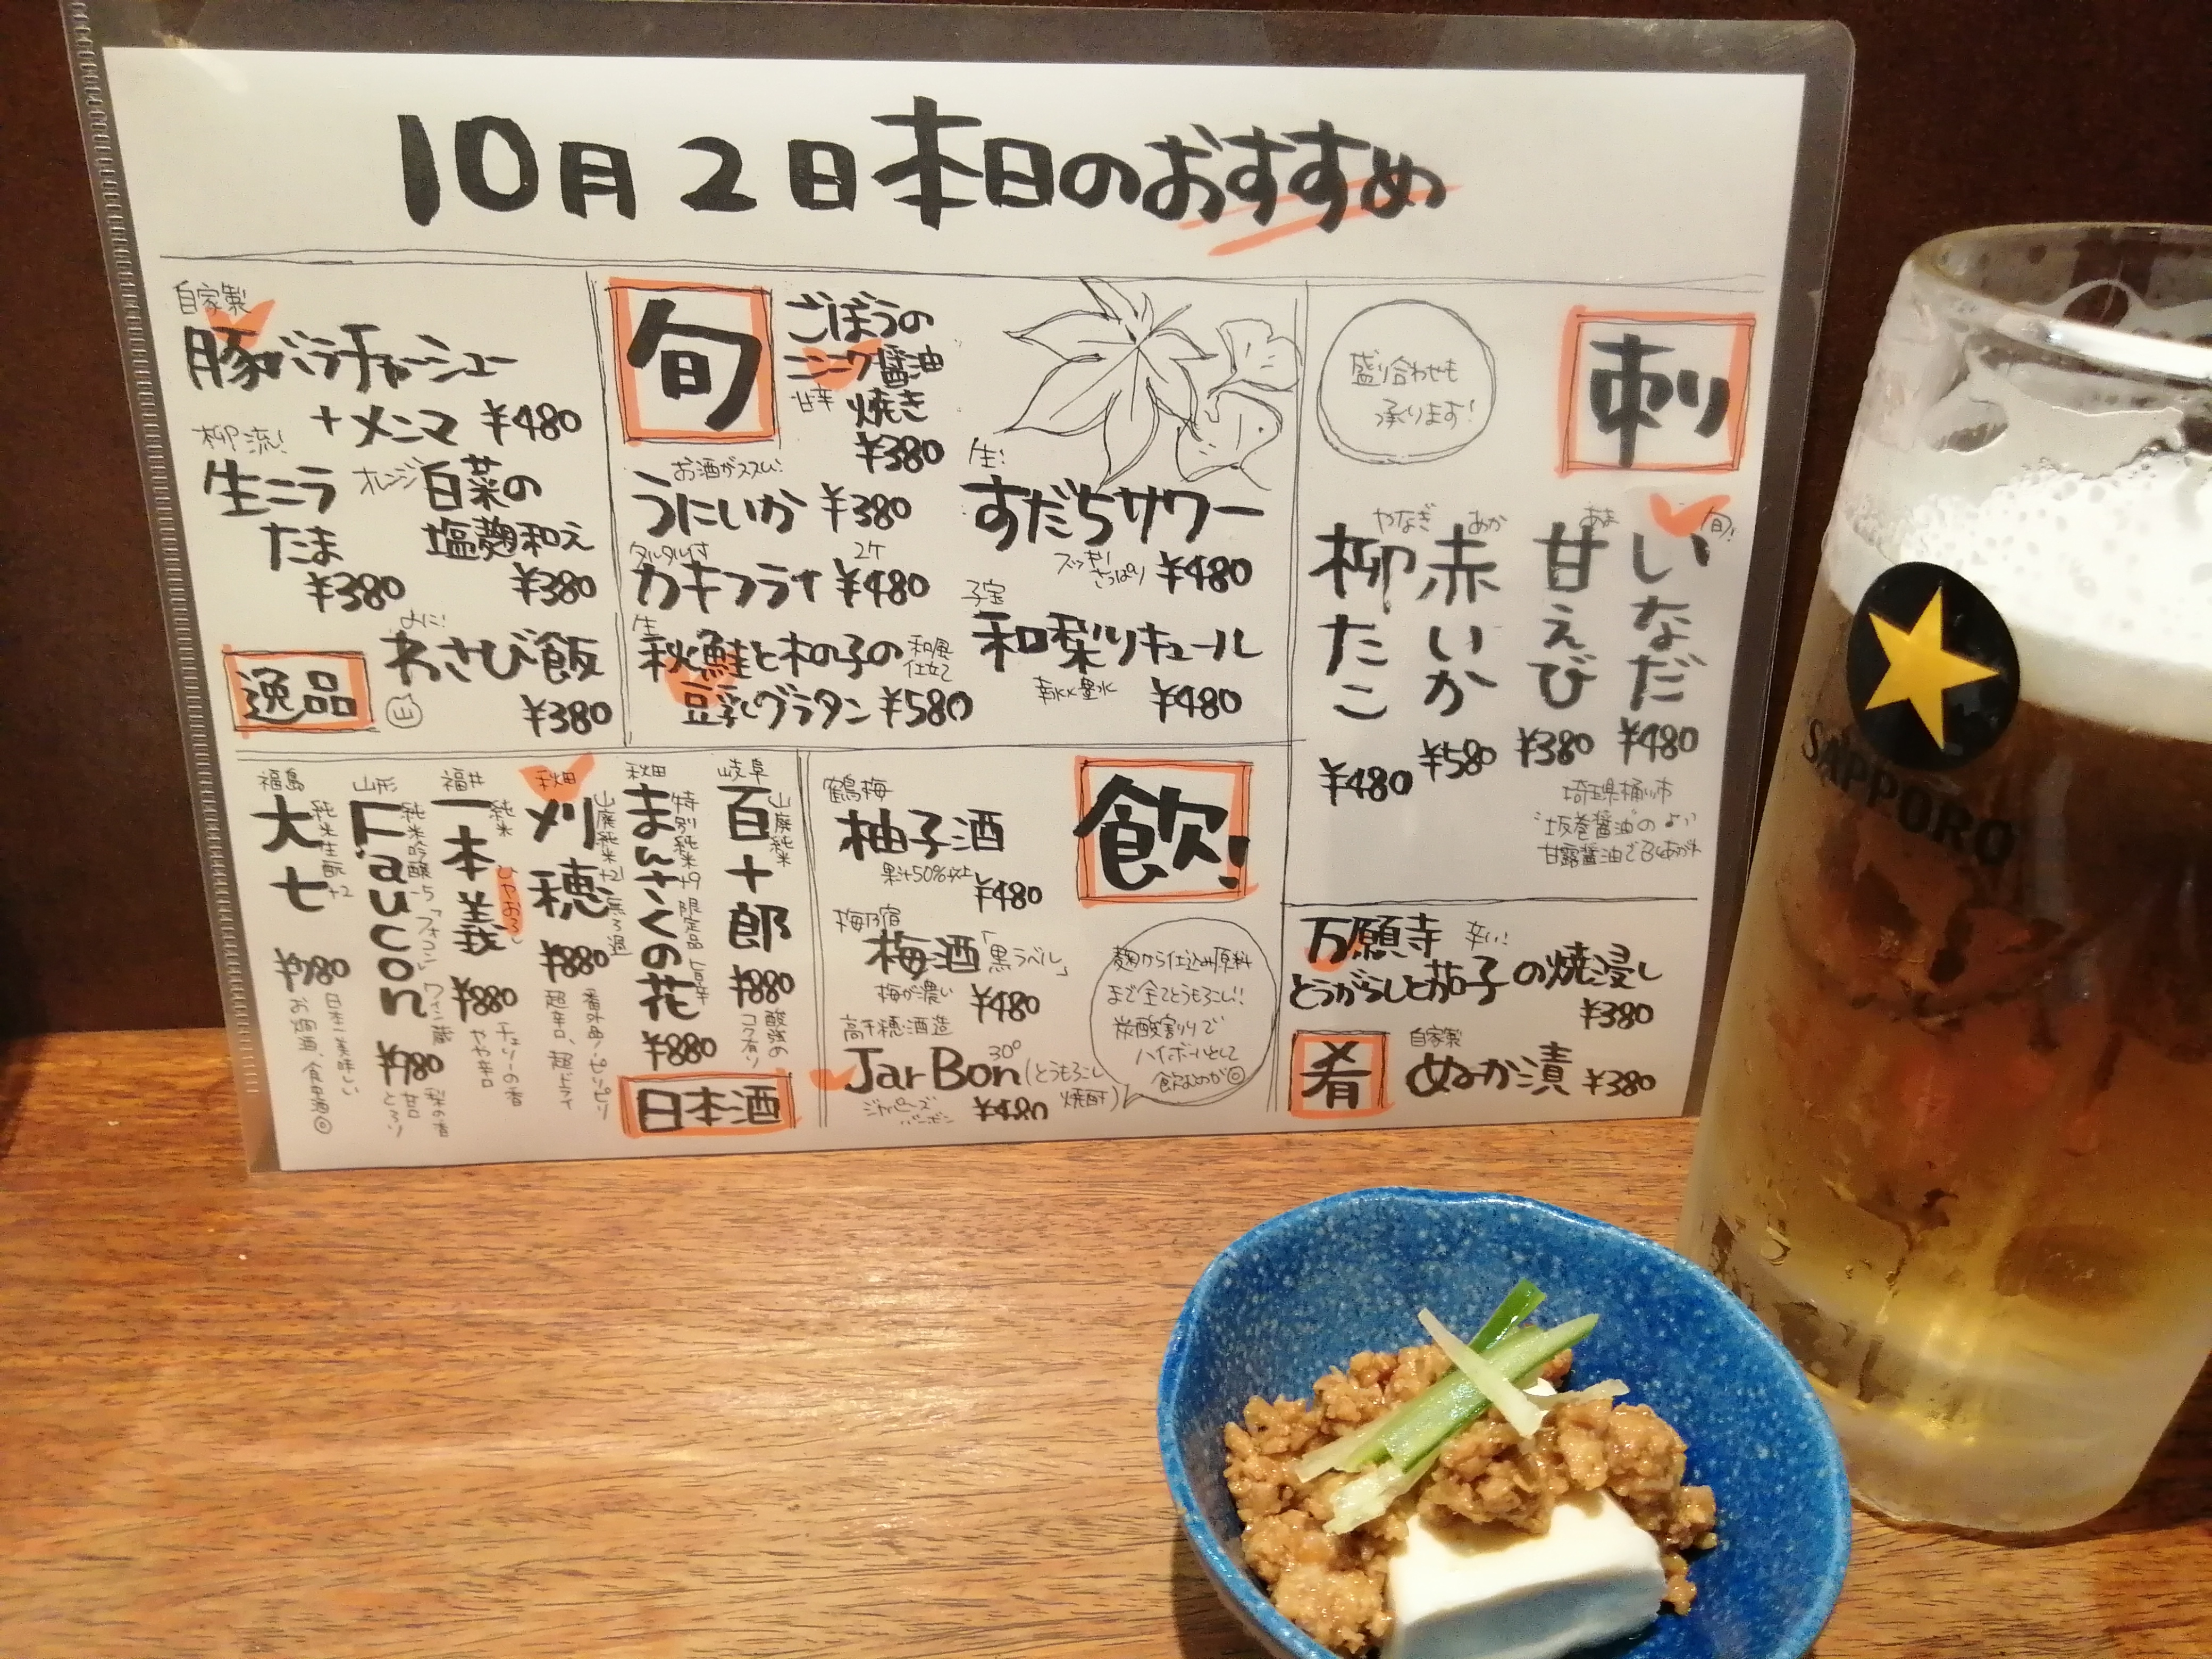 10月2日本日のおすすめ
自家製
豚バラチャーシュー
+メンマ ¥480
柳流!
生ニラ
たま
¥380
オレンジ白菜の
塩麹和え
¥380
わさび飯
¥380
逸品
旬
ごぼうの
ニンニク醤油
甘辛 焼き
¥380
お酒がススム!
うにいか ¥380
タルタル付
カキフライ 2ケ ¥480
生
秋鮭と木の子の 和風仕立て
豆乳グラタン ¥580
生!
すだちサワー
スッキリ さっぱり ¥480
子宝
和梨リキュール
¥480
刺
盛り合わせも
承ります!
旬!
いなだ ¥480
あま
甘えび ¥380
あか
赤いか ¥580
やなぎ
柳たこ ¥480
埼玉県桶川市
"坂巻醤油"の
甘露醤油で
万願寺 辛い!
とうがらしと茄子の焼浸し
¥380
肴
自家製
ぬか漬 ¥380
飲!
鶴梅
柚子酒
果汁50%以上 ¥480
梅乃宿
梅酒「黒ラベル」
梅が濃い ¥480
高千穂酒造
JarBon 30° (とうもろこし焼酎)
ジャパニーズ
バーボン ¥480
麹から仕込み原料
まで全てとうもろこし!!
炭酸割りで
ハイボールとして
飲むのが◎
日本酒
岐阜
百十郎 山廃純米
¥880
酸強め
コク有り
秋田
まんさくの花 特別純米+9 限定品 旨辛
¥880
秋田
刈穂 山廃純米+21 無ろ過
¥880
番外品!ピリピリ
超辛口、超ドライ
福井
一本義 純米 ひやおろし
¥880
チェリーの香
やや辛口
山形
Faucon 純米吟醸-5 「フォコン」ワイン蔵
¥780
梨の香
甘口 とろり
福島
大七 純米生酛+2
¥780
日本一美味しい
お燗酒、食中酒◎
SAPPORO